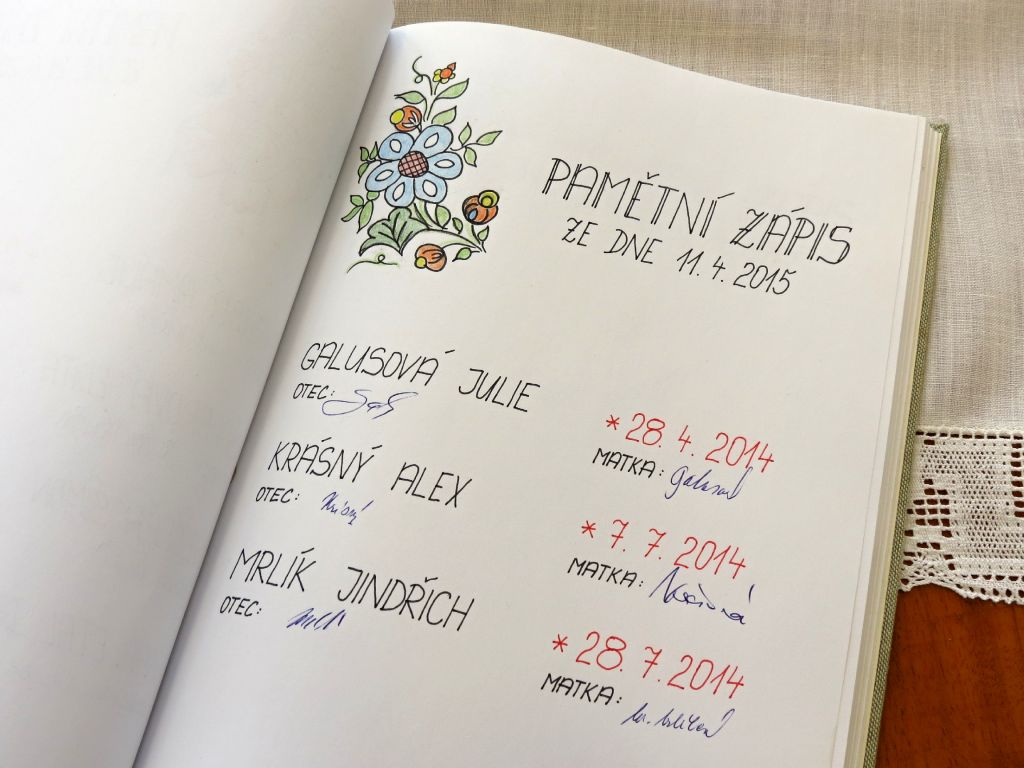 PAMĚTNÍ ZÁPIS
ZE DNE 11. 4. 2015
GALUSOVÁ JULIE
* 28. 4. 2014
OTEC:
MATKA: Galusová
KRÁSNÝ ALEX
* 7. 7. 2014
OTEC: Krásný
MATKA: Krásná
MRLÍK JINDŘICH
* 28. 7. 2014
OTEC:
MATKA: